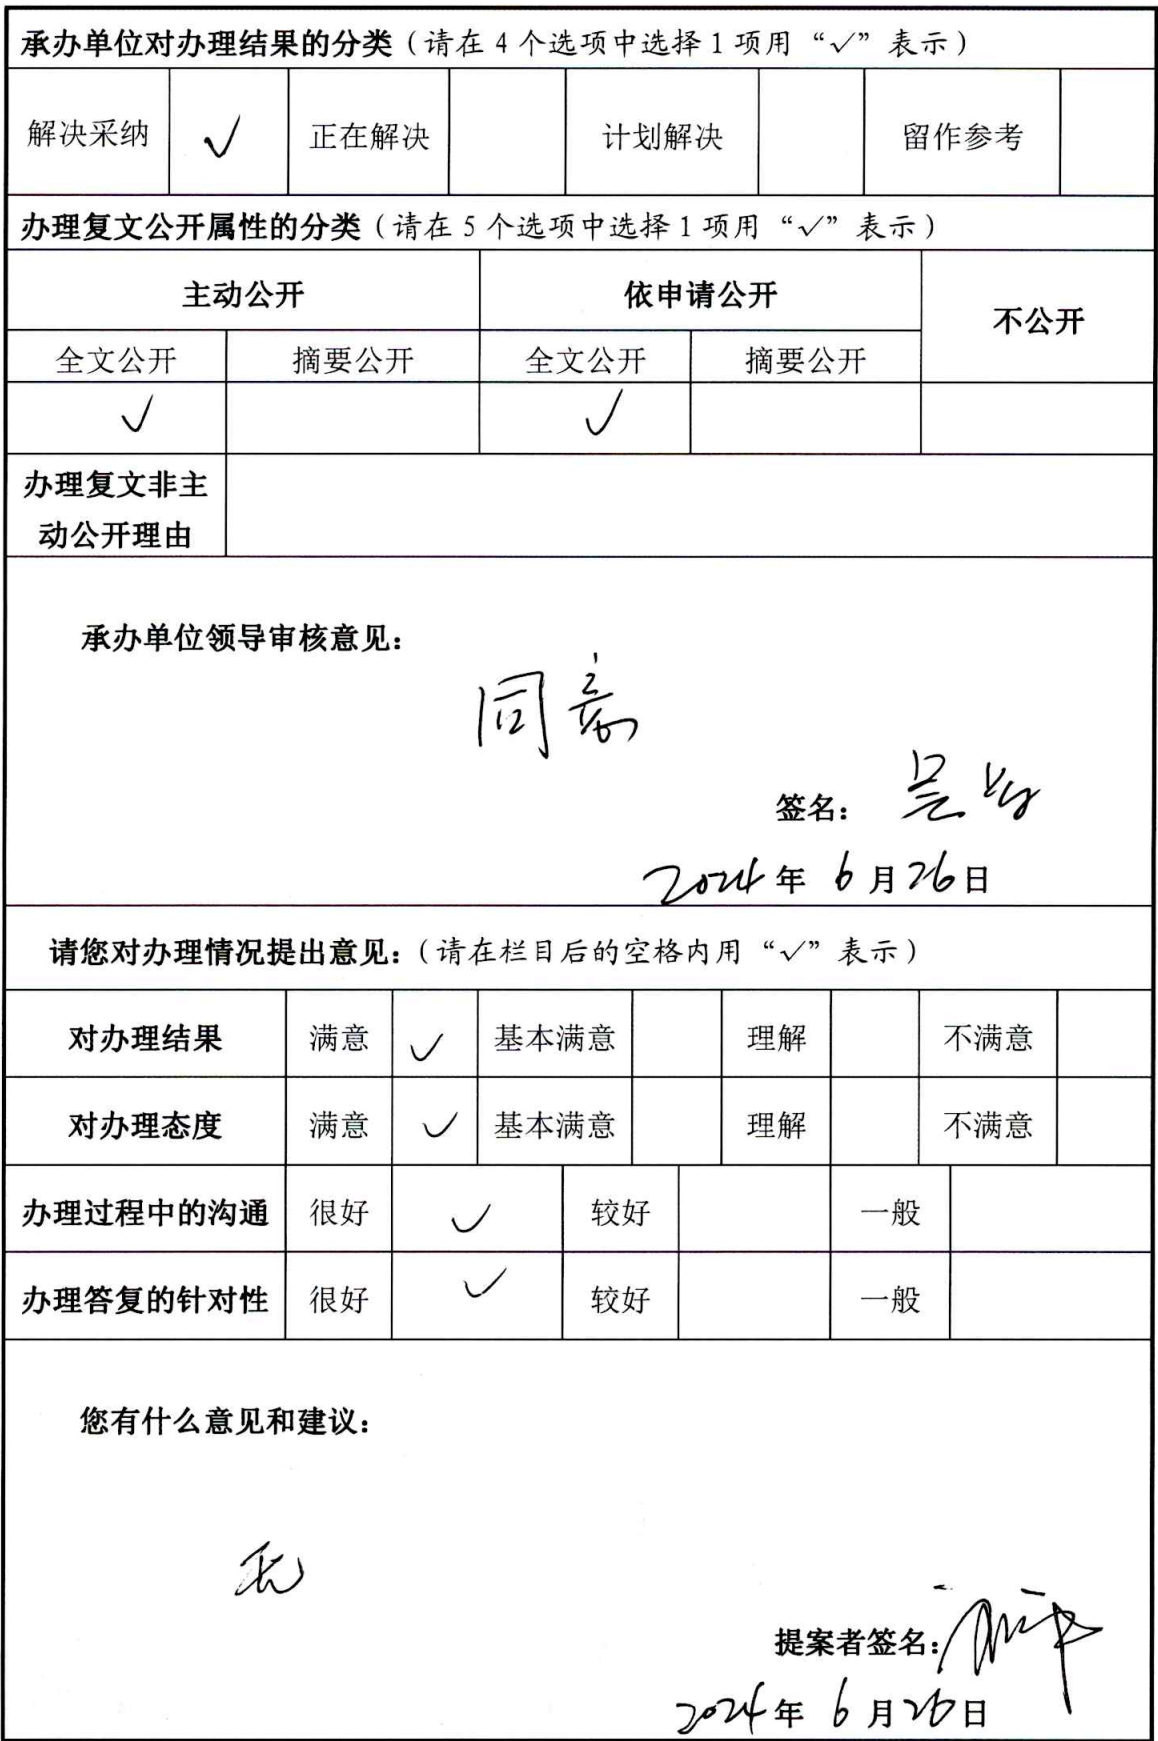 承办单位对办理结果的分类（请在 4 个选项中选择 1 项用“√”表示）
解决采纳 √ 正在解决 计划解决 留作参考
办理复文公开属性的分类（请在 5 个选项中选择 1 项用“√”表示）
主动公开 依申请公开 不公开
全文公开 摘要公开 全文公开 摘要公开
√ √
办理复文非主
动公开理由
承办单位领导审核意见：
同意
签名：吴
2024年 6月26日
请您对办理情况提出意见：（请在栏目后的空格内用“√”表示）
对办理结果 满意 √ 基本满意 理解 不满意
对办理态度 满意 √ 基本满意 理解 不满意
办理过程中的沟通 很好 √ 较好 一般
办理答复的针对性 很好 √ 较好 一般
您有什么意见和建议：
无
提案者签名：
2024年 6月26日